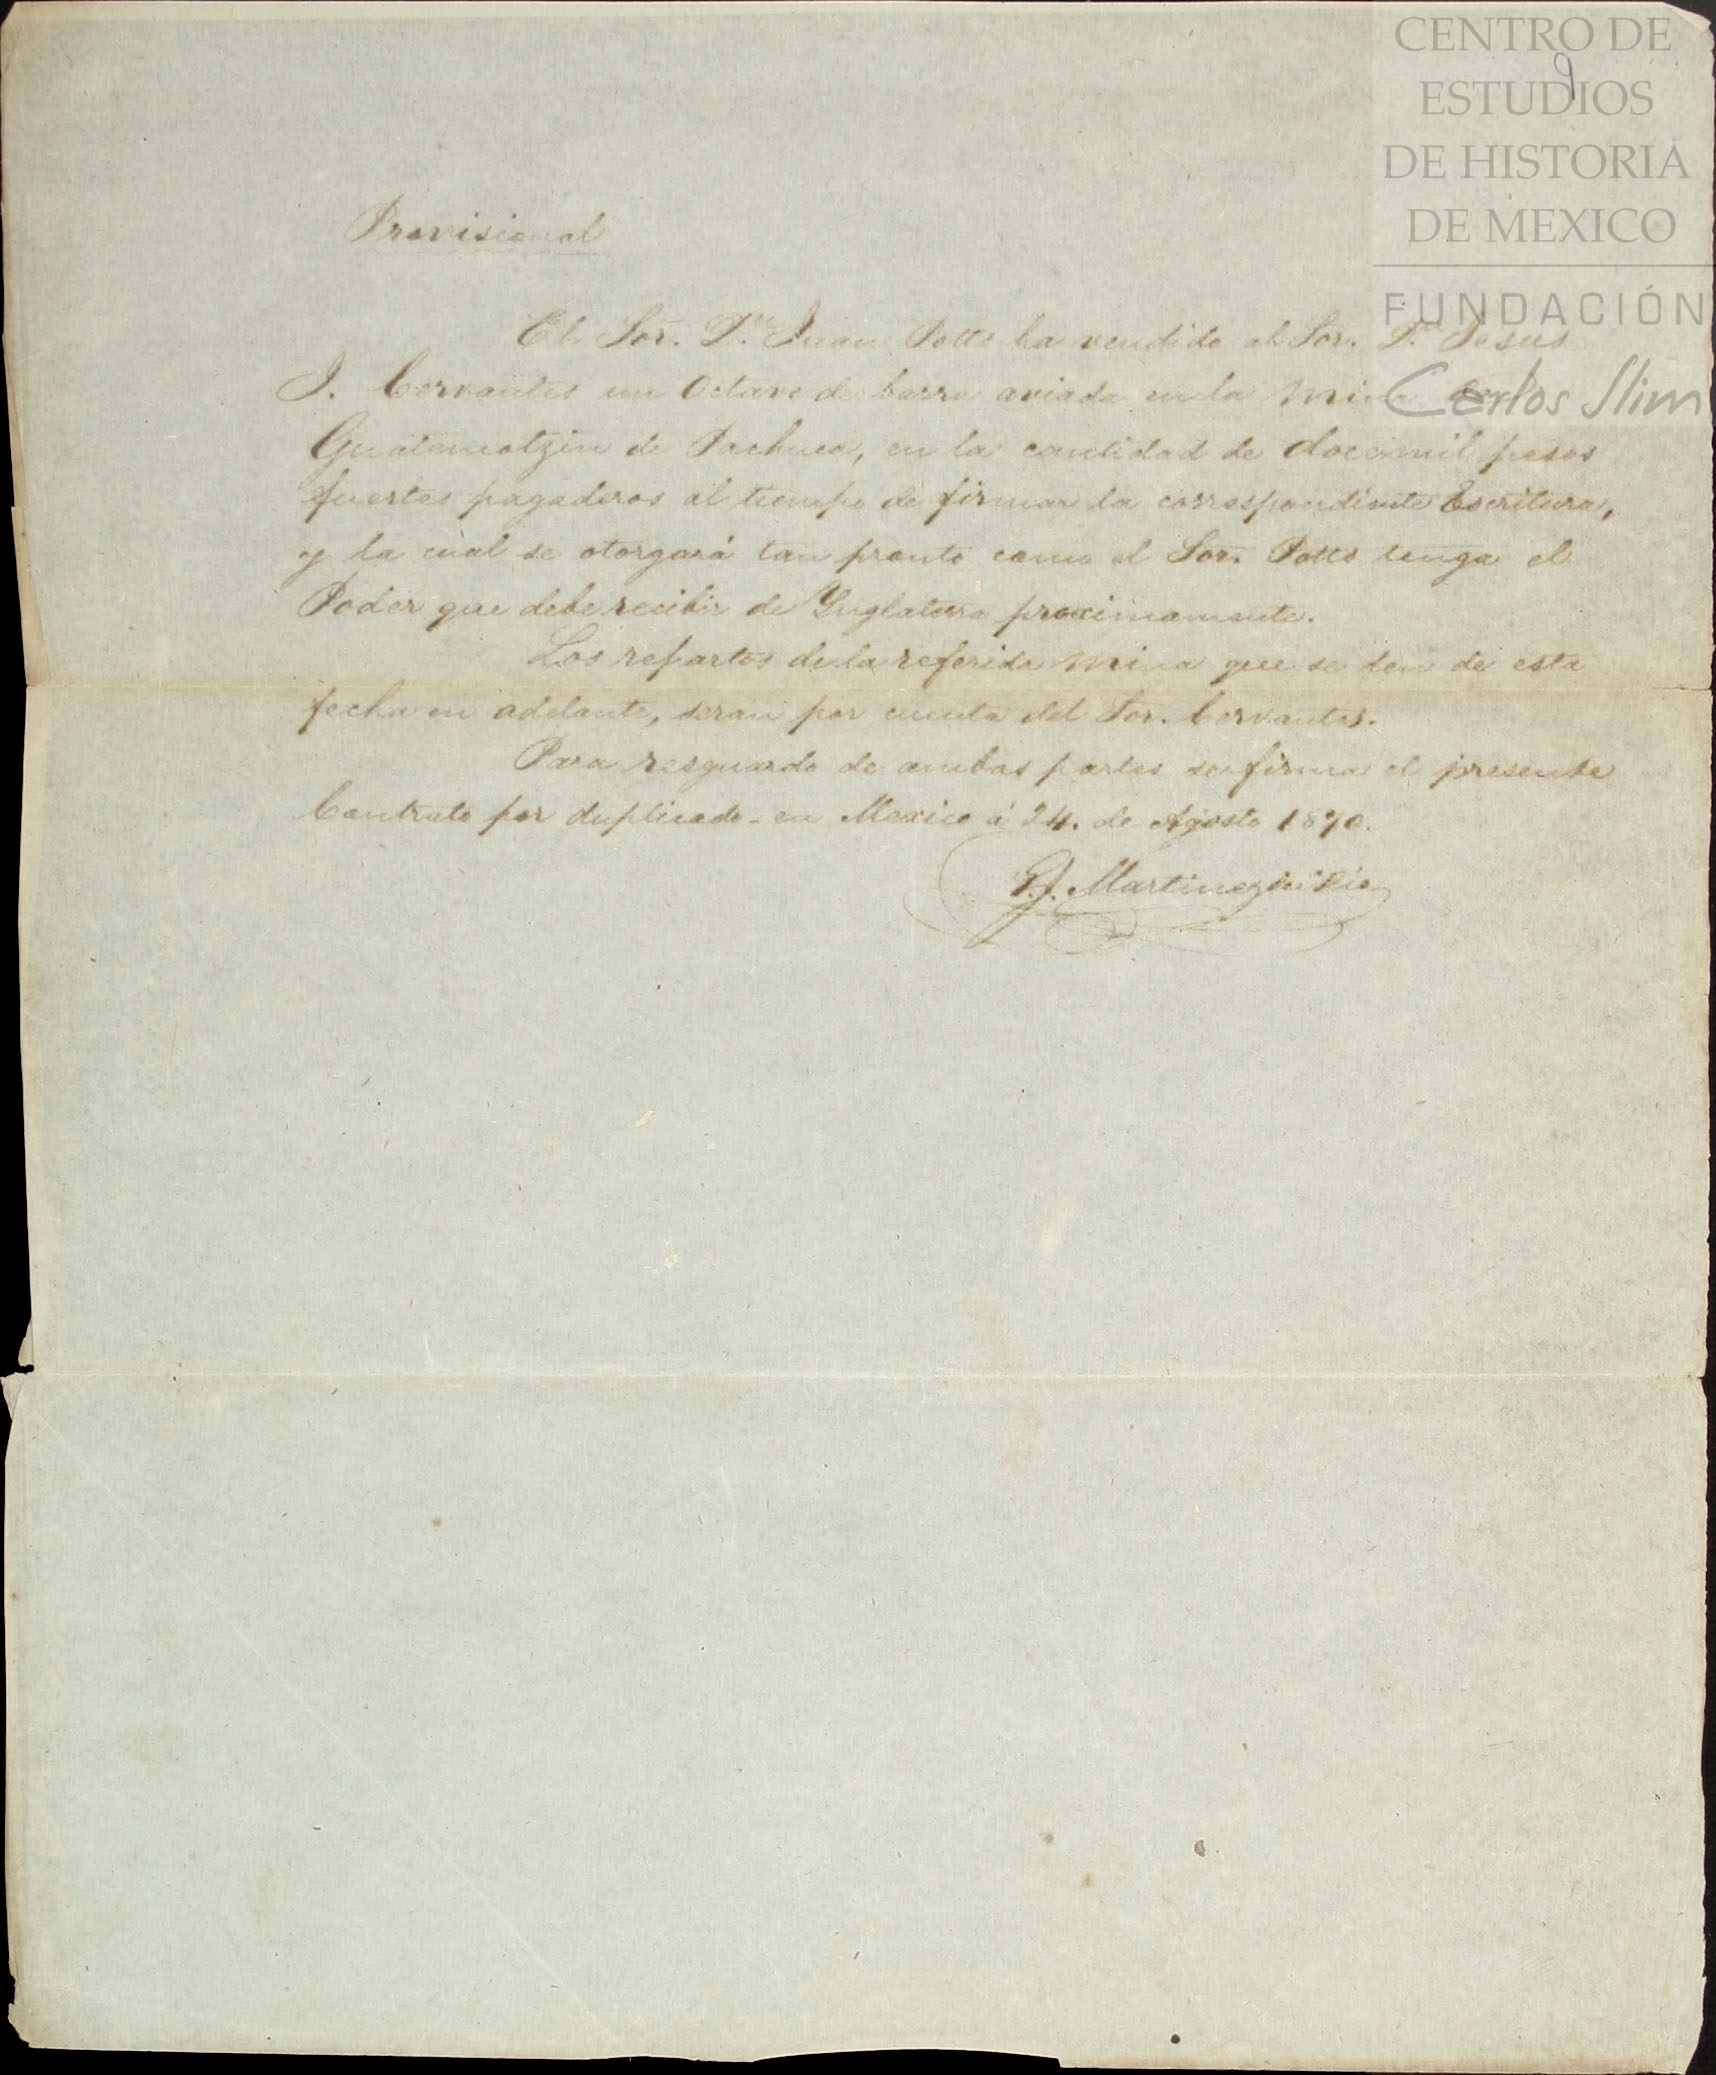 CENTRO DE
ESTUDIOS
DE HISTORIA
DE MEXICO
FUNDACIÓN
Carlos Slim
9
Provisional
El Sor. Dn. Juan Potts ha vendido al Sor. Dn. Jesus
J. Cervantes un Octavo de barra aviada en la Mina de
Guatemotzin de Pachuca, en la cantidad de doce mil pesos
fuertes pagaderos al tiempo de firmar la correspondiente Escritura,
y la cual se otorgará tan pronto como el Sor. Potts tenga el
Poder que debe recibir de Inglaterra proximamente.
Los repartos de la referida Mina que se den de esta
fecha en adelante, seran por cuenta del Sor. Cervantes.
Para resguardo de ambas partes se firma el presente
Contrato por duplicado - en Mexico á 24. de Agosto 1870.
P.J. Martinez del Rio